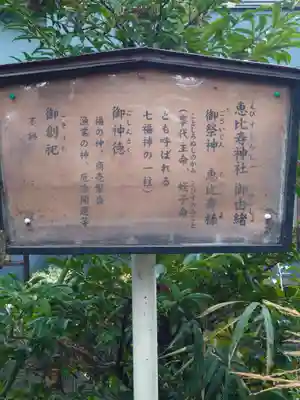 恵比寿神社 御由緒
御祭神 恵比寿様
(事代主命、蛭子命
とも呼ばれる
七福神の一柱)
御神徳
福の神、商売繁昌
漁業の神、厄除開運等
御創祀
不詳